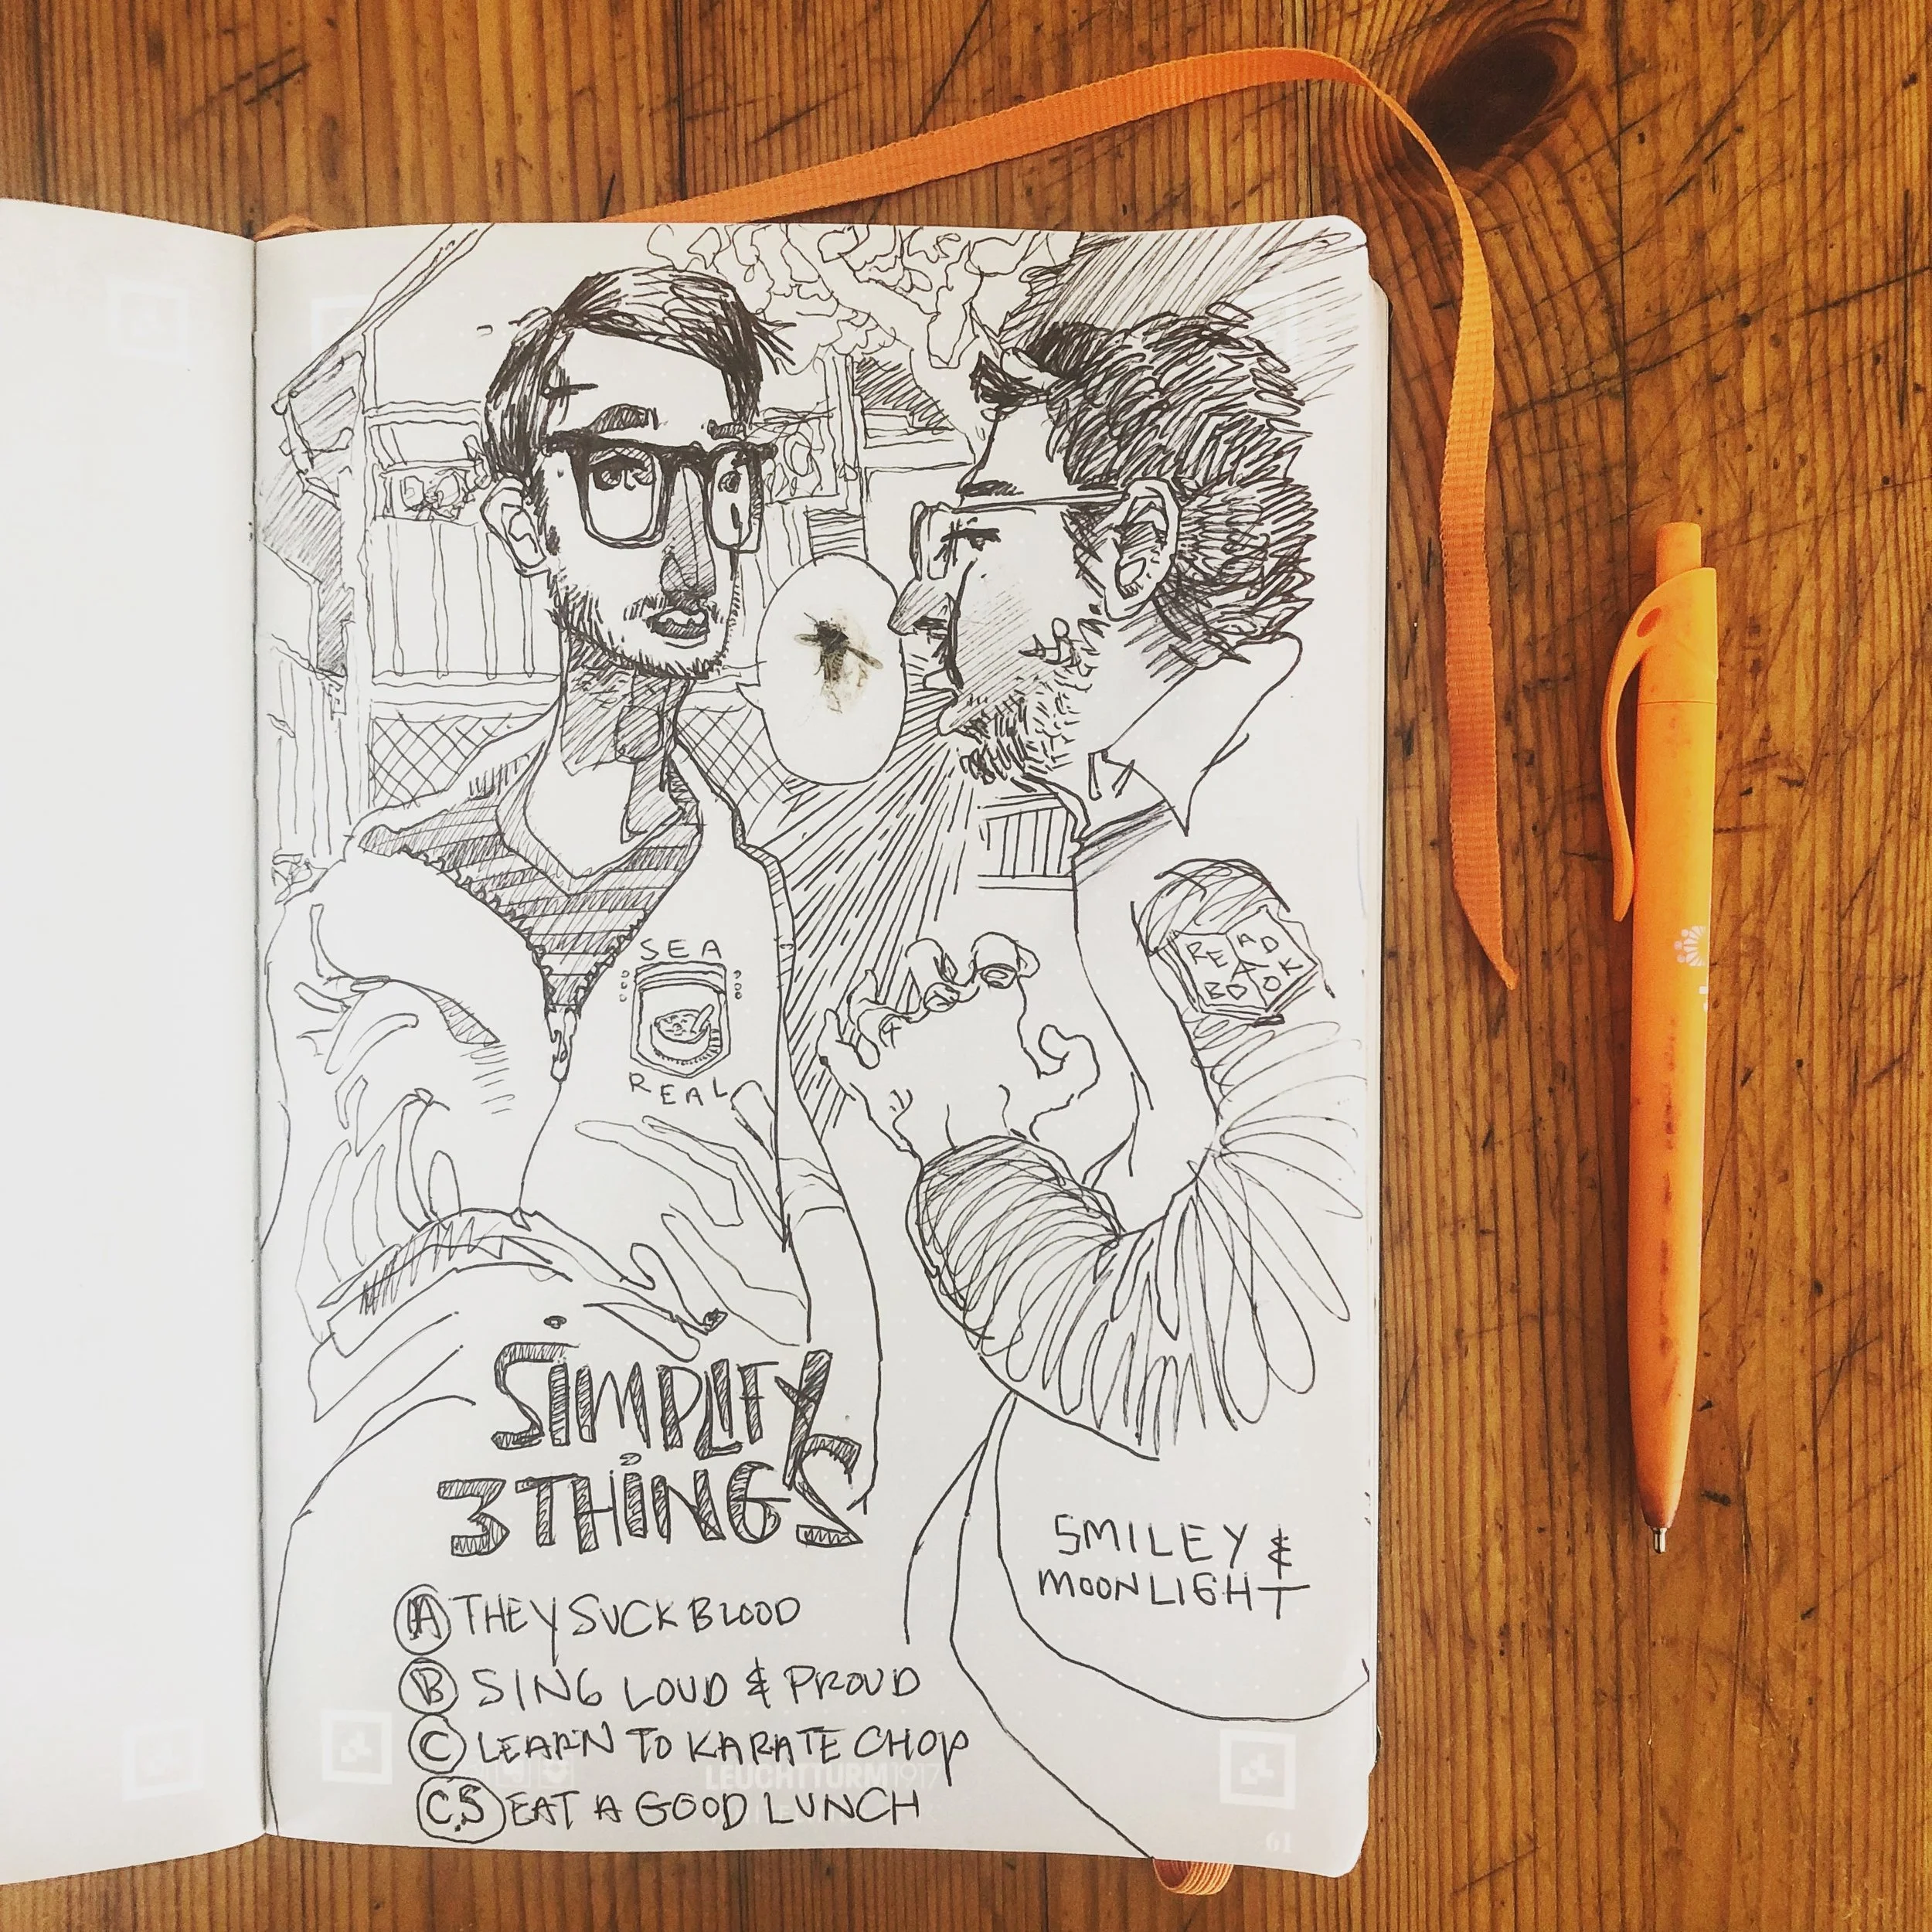 SEA
REAL
READ
A
BOOK
SIMPLIFY
3 THINGS
SMILEY &
MOONLIGHT
A THEY SUCK BLOOD
B SING LOUD & PROUD
C LEARN TO KARATE CHOP
LEUCHTTURM1917
C.5 EAT A GOOD LUNCH
61